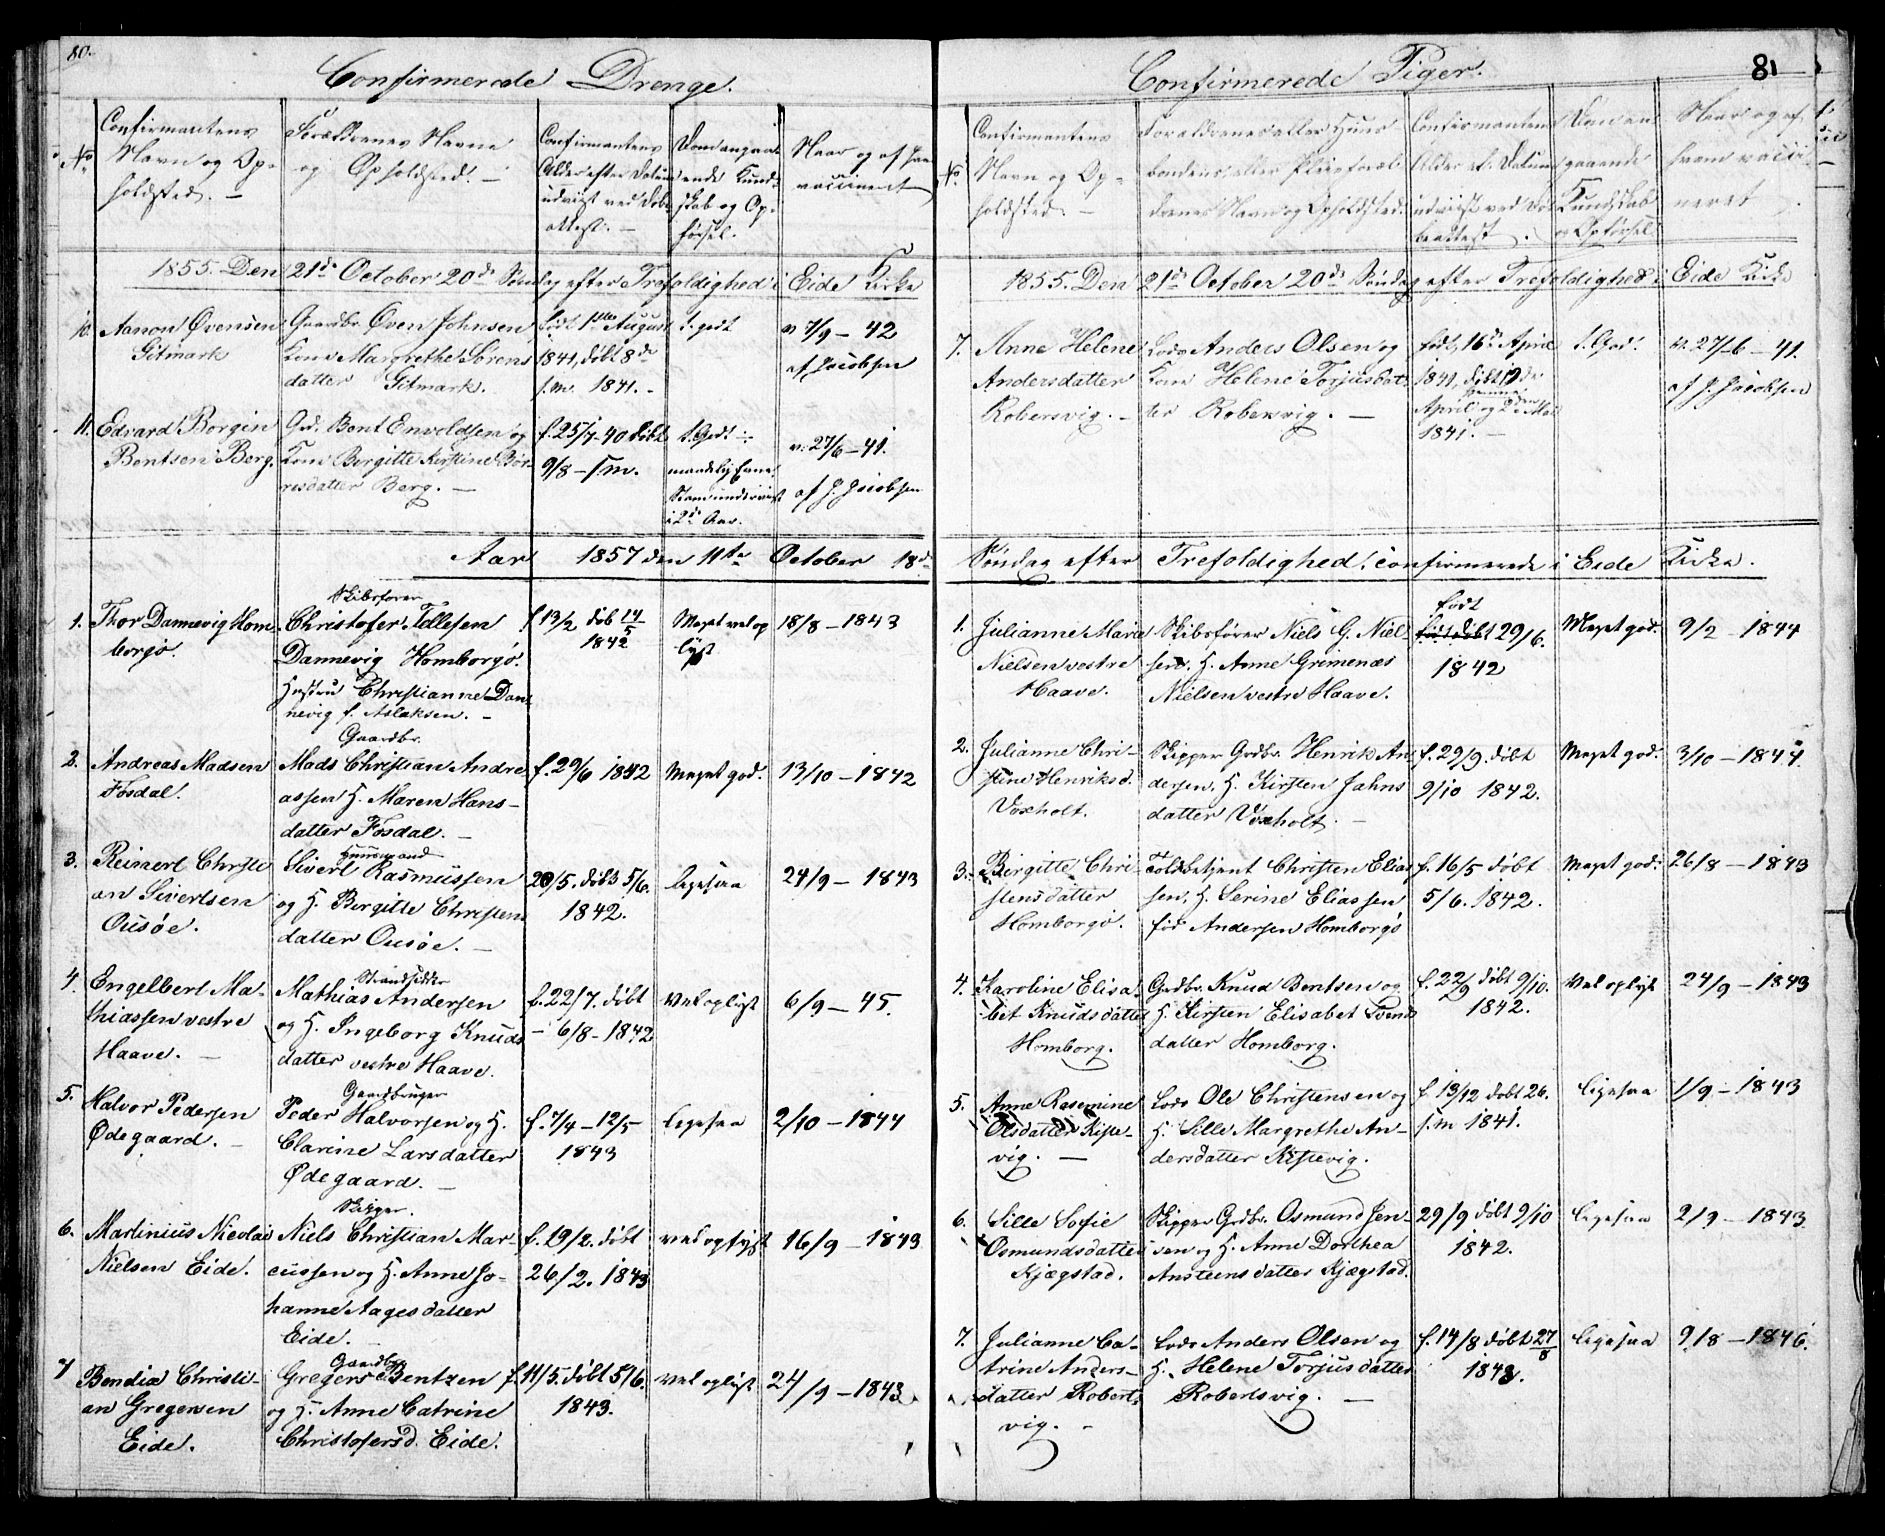 80.
Confirmerede Drenge.
No
Confirmantens
Navn og Op-
holdsted. -
Forældrenes Navne
og Opholdsted. -
Confirmantens
Alder efter Datum
udviist ved Døbe
attest. -
Dom angaa-
ende Kund-
skab og Op-
førsel.
Naar og af hvem
vaccineret
1855. Den 21de October 20de Søndag efter Trefoldighed i Eide Kirke
10. Aanon Øvensen
Gitmark
Gaardbr. Øven Johnsen
Kone Margrethe Sørens
datter Gitmark.
født 1ste August
1841, døbt 8de
s.m. 1841. -
t. godt
v. 7/9 - 42
af Jacobsen
11. Edvard Borgin
Bentsen Berg.
Gdb. Bent Envoldsen og
Kone Borgitte Kirstine Bør-
resdatter Berg. -
f. 25/7 - 40 døbt
9/8 - s.m.
t. Godt
maadelig Evne
i 2de Aar.
v. 27/6 - 41.
af J. Jacobsen
Aar 1857 den 11te October 18de
1. Thor Dannevig Hom
borgø.
Skibsfører
Christofer Tellefsen
Dannevig Homborgø.
Hustru Christianne Dan-
nevig f. Aslaksen. -
f 13/2 døb 14/5
1842
Meget vel op
lyst
18/8 - 1843
2. Andreas Madsen
Fosdal.
Gaardbr.
Mads Christian Andre
assen H. Maren Hans-
datter Fosdal. -
f. 29/6 1842
Meget god.
13/10 - 1842
3. Reinert Christi
an Sivertsen
Ousøe.
Huusmand
Sivert Rasmussen
og H. Birgitte Christens
datter Ousøe. -
20/5. døbt 5/6.
1842.
ligesaa
24/9 - 1843
4. Engelbert Ma-
thiassen vestre
Haave. -
Strandsidder
Mathias Andersen
og H. Ingeborg Knuds
datter vestre Haave.
f. 22/7. døbt
- 6/8 - 1842
Vel oplyst
6/9 - 45.
5. Halvor Pedersen
Ødegaard. -
Gaardbruger
Peder Halvorsen og H.
Clarine Larsdatter
Ødegaard. -
f. 7/4 - 12/5
1843
ligesaa
2/10 - 1844
6. Martinius Nicolai
Nielsen Eide.
Skipper.
Niels Christian Mar-
cussen og H. Anne Jo-
hanne Aagesdatter
Eide. -
f. 19/2. døbt
26/2. 1843
vel oplyst
16/9 - 1843
7 Bendix Christi-
an Gregersen
Eide.
Gaardbr.
Gregers Bentzen
og H. Anne Catrine
Christofersd. Eide.
f. 11/5. døbt 5/6.
1843.
vel oplyst
24/9 - 1843
81
Confirmerede Piger.
No.
Confirmantens
Navn og Op-
holdsted. -
Forældrenes eller Huus
bondens, eller Pleieforæl
drenes Navn og Opholdsted.
Confirmantens
Alder ef. Datum
udviist ved Dø
beattest.
Dom an
gaaende
Kundskab
og Opførsel
Naar og af
hvem vacci-
neret.
1855. Den 21de October 20de Søndag efter Trefoldighed i Eide Kirke
7. Anne Helene
Andersdatter
Robersvig. -
Lods Anders Olsen og
Kone Helene Torjusdat-
ter Robersvig. -
født, 16de April
1841, døbt
April og 2den Mai
1841. -
t. God.
v. 27/6 - 41.
af J. Jacobsen
Søndag efter Trefoldighed confirmerede i Eide Kirke.
1. Julianne Marie
Nielsen vestre
Haave.
Skibsfører Niels G. Niel-
sen. H. Anne Grimenæs
Nielsen vestre Haave.
født
29/6.
1842
Meget god.
9/2 - 1844
2. Julianne Chri-
stine Henriksd.
Voxholt.
Skipper Grdbr. Henrik An
dersen. H. Kirsten Jahns
datter Voxholt. -
f. 29/9 døbt
9/10 1842.
Meget god.
3/10 - 1844.
3. Birgitte Chri-
stensdatter
Homborgø.
Toldbetjent Christen Elias
sen. H. Serine Eliassen
fød Andersen Homborgø
f. 16/5 døbt
5/6. 1842.
Meget god.
26/8 - 1843
4. Karoline Elisa-
bet Knudsdatter
Homborg.
Grdbr. Knud Bentsen og
H. Kirsten Elisabet Svens
datter Homborg.
f. 22/9 døbt 9/10.
1842.
Vel oplyst
24/9 - 1843
5. Anne Rasmine
Olsdatter Kiste-
vig. -
Lods Ole Christensen og
H. Sille Margrethe An-
dersdatter Kistevig.
f. 13/12 døbt 26.
s.m 1841.
ligesaa
1/9 - 1843
6. Sille Sofie
Osmundsdatter
Kjægstad.
Skipper Grdbr. Osmund Jen-
sen og H. Anne Dorthea
Ansteensdatter Kjægstad.
29/9 døbt 9/10
1842.
ligesaa
2/9 - 1843
7. Julianne Ca-
trine Anders-
datter Roberts
vig. -
Lods Anders Olsen og
H. Helene Torjusdatter
Robertsvig. -
f. 14/8 døbt 27/8
1843.
ligesaa
9/8 - 1846